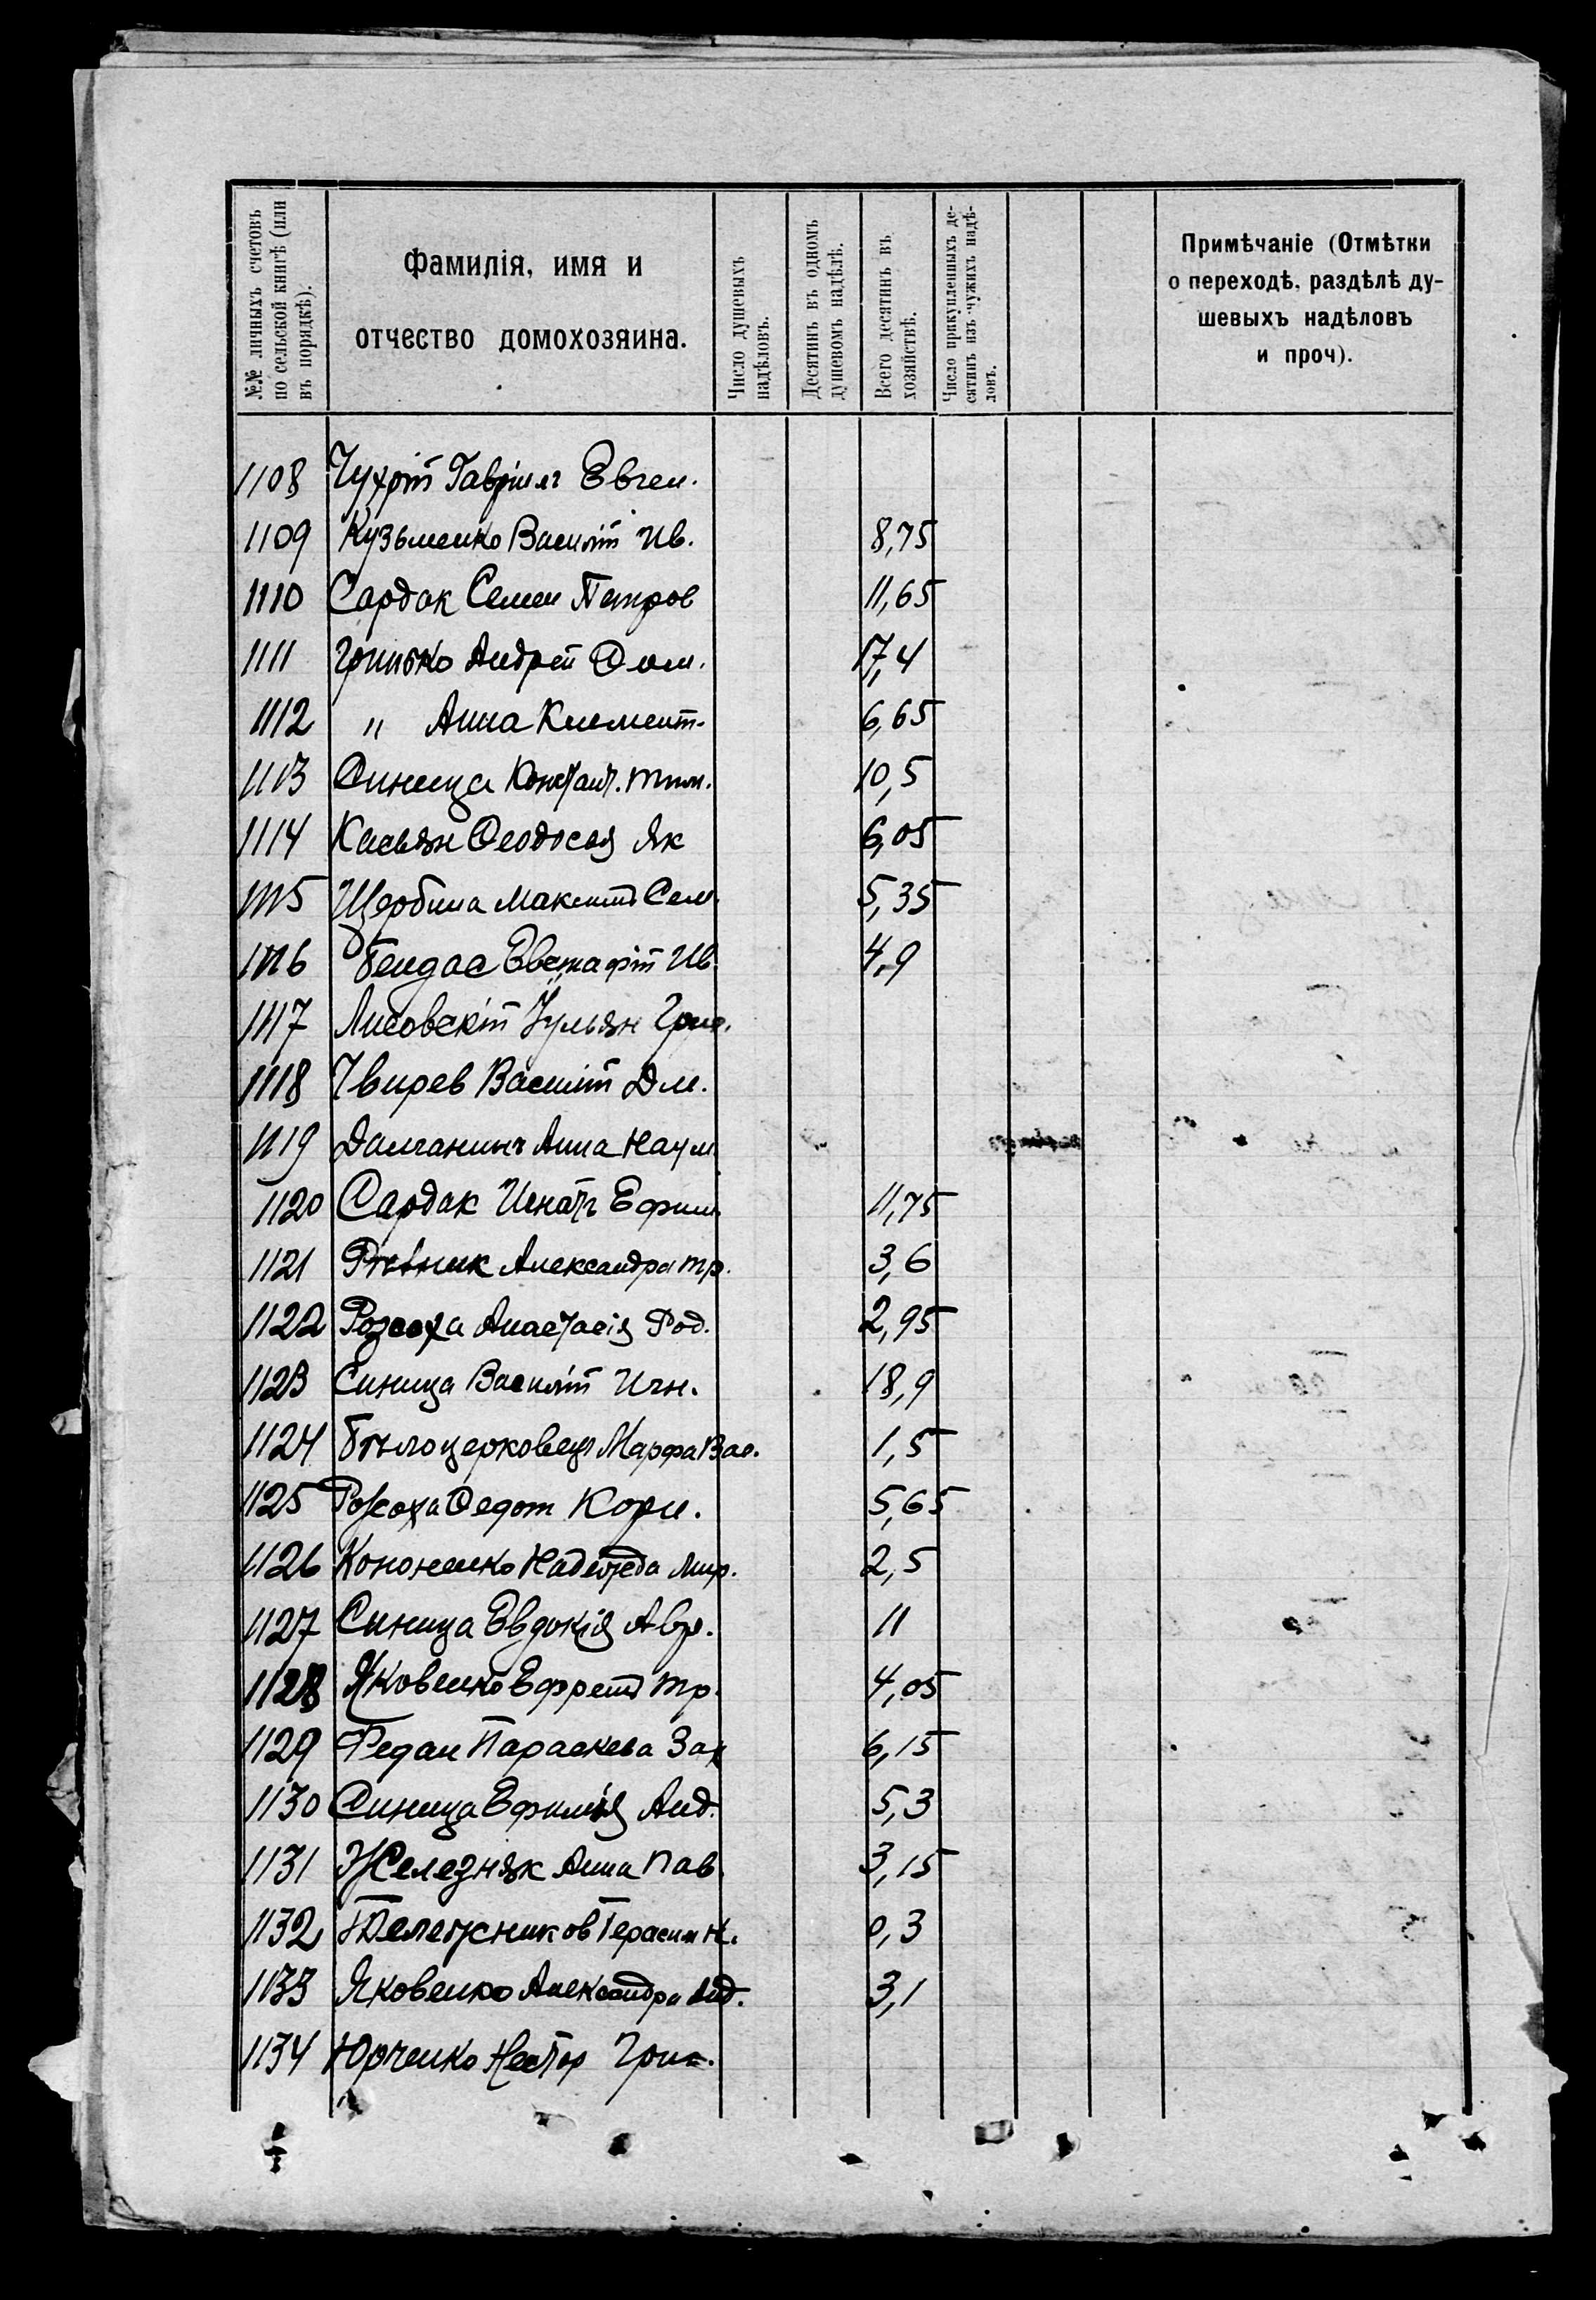 №№ личныхъ счетовъ
по сельской книгѣ (или
въ порядкѣ).
Фамилія, имя и
отчество домохозяина.
Число душевыхъ
надѣловъ.
Десятинъ въ одномъ
душевомъ надѣлѣ.
Всего десятинъ въ
хозяйствѣ.
Число прикупленныхъ де-
сятинъ изъ чужихъ надѣ-
ловъ.
Примѣчаніе (Отмѣтки
о переходѣ, раздѣлѣ ду-
шевыхъ надѣловъ
и проч).
1108 Гавріилъ Евген.
1109 Кузьменко Василій Ив. 8,75
1110 Сардак Семен Петров 11,65
1111 Гринько Андрей 17,4
1112 " Анна Климент. 6,65
1113 Синица Констант. Тим. 10,5
1114 Касьян Феодосия Як 6,05
1115 Щербина Максим Сем. 5,35
1116 Бендас Евстафій Ив. 4,9
1117 Лисовскій Ульян Григ.
1118 Чвирев Василій Дм.
1119 Анна Наум.
1120 Сардак Игнатъ Ефим. 11,75
1121 Рѣвник Александра Тр. 3,6
1122 Розсоха Анастасія Род. 2,95
1123 Синица Василій Игн. 18,9
1124 Бѣлоцерковец Марфа Вас. 1,5
1125 Розсоха Федот Корн. 5,65
1126 Кононенко Надежда Мир. 2,5
1127 Синица Евдокія Авр. 11
1128 Яковенко Ефрем Тр. 4,05
1129 Редан Параскева Зах 6,15
1130 Синица Ефимія Анд. 5,3
1131 Железняк Анна Пав. 3,15
1132 Герасим Н. 0,3
1133 Яковенко Александра Анд. 3,1
1134 Юрченко Нестор Григ.